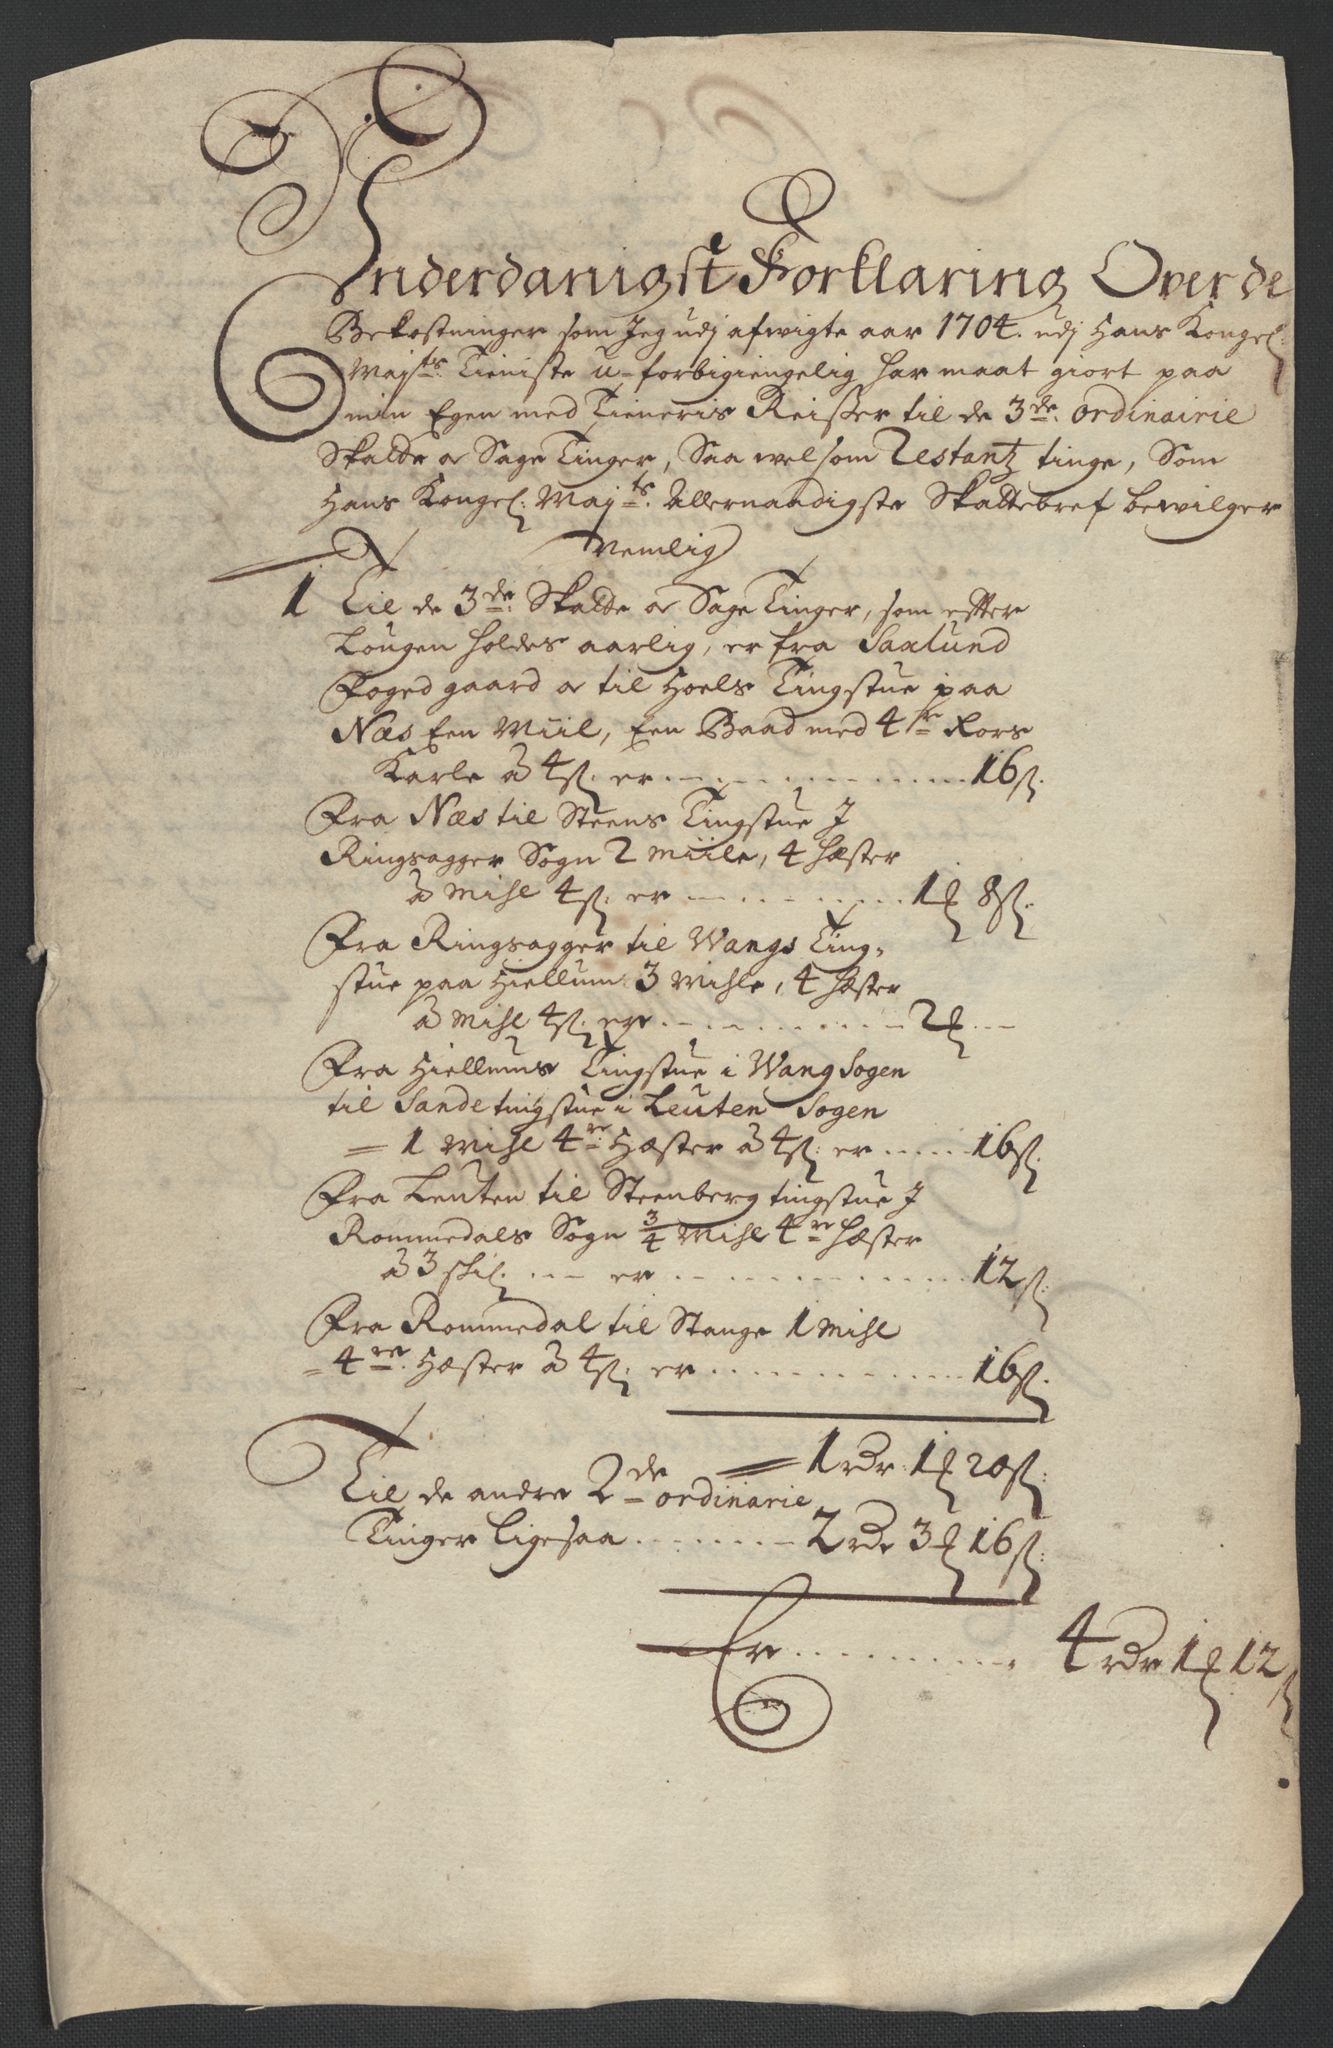 Underdanigst Forklaring Over de
Bekostninger som Jeg udj afwigte aar 1704. udj Hans Kongel:
Majts: Tieniste u-forbigiengelig har maat giort paa
min Egen med Tieneris Reisser til de 3de: ordinairie
Skatte og Sage Tinger, Saa wel som Restantz tinge, Som
Hans Kongel: Majts: Allernaadigste Skattebref bewilger
Nemlig
1 Til de 3de: Skatte og Sage Tinger, som effter
Lougen holdes aarlig, er fra Saxlund
Foged gaard og til Hoels Tingstue paa
Næs Een Miil, Een Baad med 4re Rors
Karle â 4s: er 16s:
Fra Næs til Steens Tingstue J
Ringsagger Sogn 2 Miile, 4 Hæster
â Mihl 4s: er 1 8s:
Fra Ringsagger til Wangs Ting-
stue paa Hiellum 3 Mihle, 4 Hæster
â Mihl 4s: er 2
Fra Hiellums Tingstue i Wang Sogen
til Sande tingstue i Leuten Sogen
= 1 Mihl 4re: Hæster â 4s: er 16s:
Fra Leuten til Steenberg tingstue J
Rommedals Sogn 3/4 Mihl 4re Hæster
â 3 skil: er 12s:
Fra Rommedal til Stange 1 Mihl
= 4re: Hæster â 4s: er 16s:
= 1 rdr: 1 20s:
Til de andre 2de ordinarie
Tinger ligesaa 2 rdr 3 16s:
Er 4 rdr 1 12s